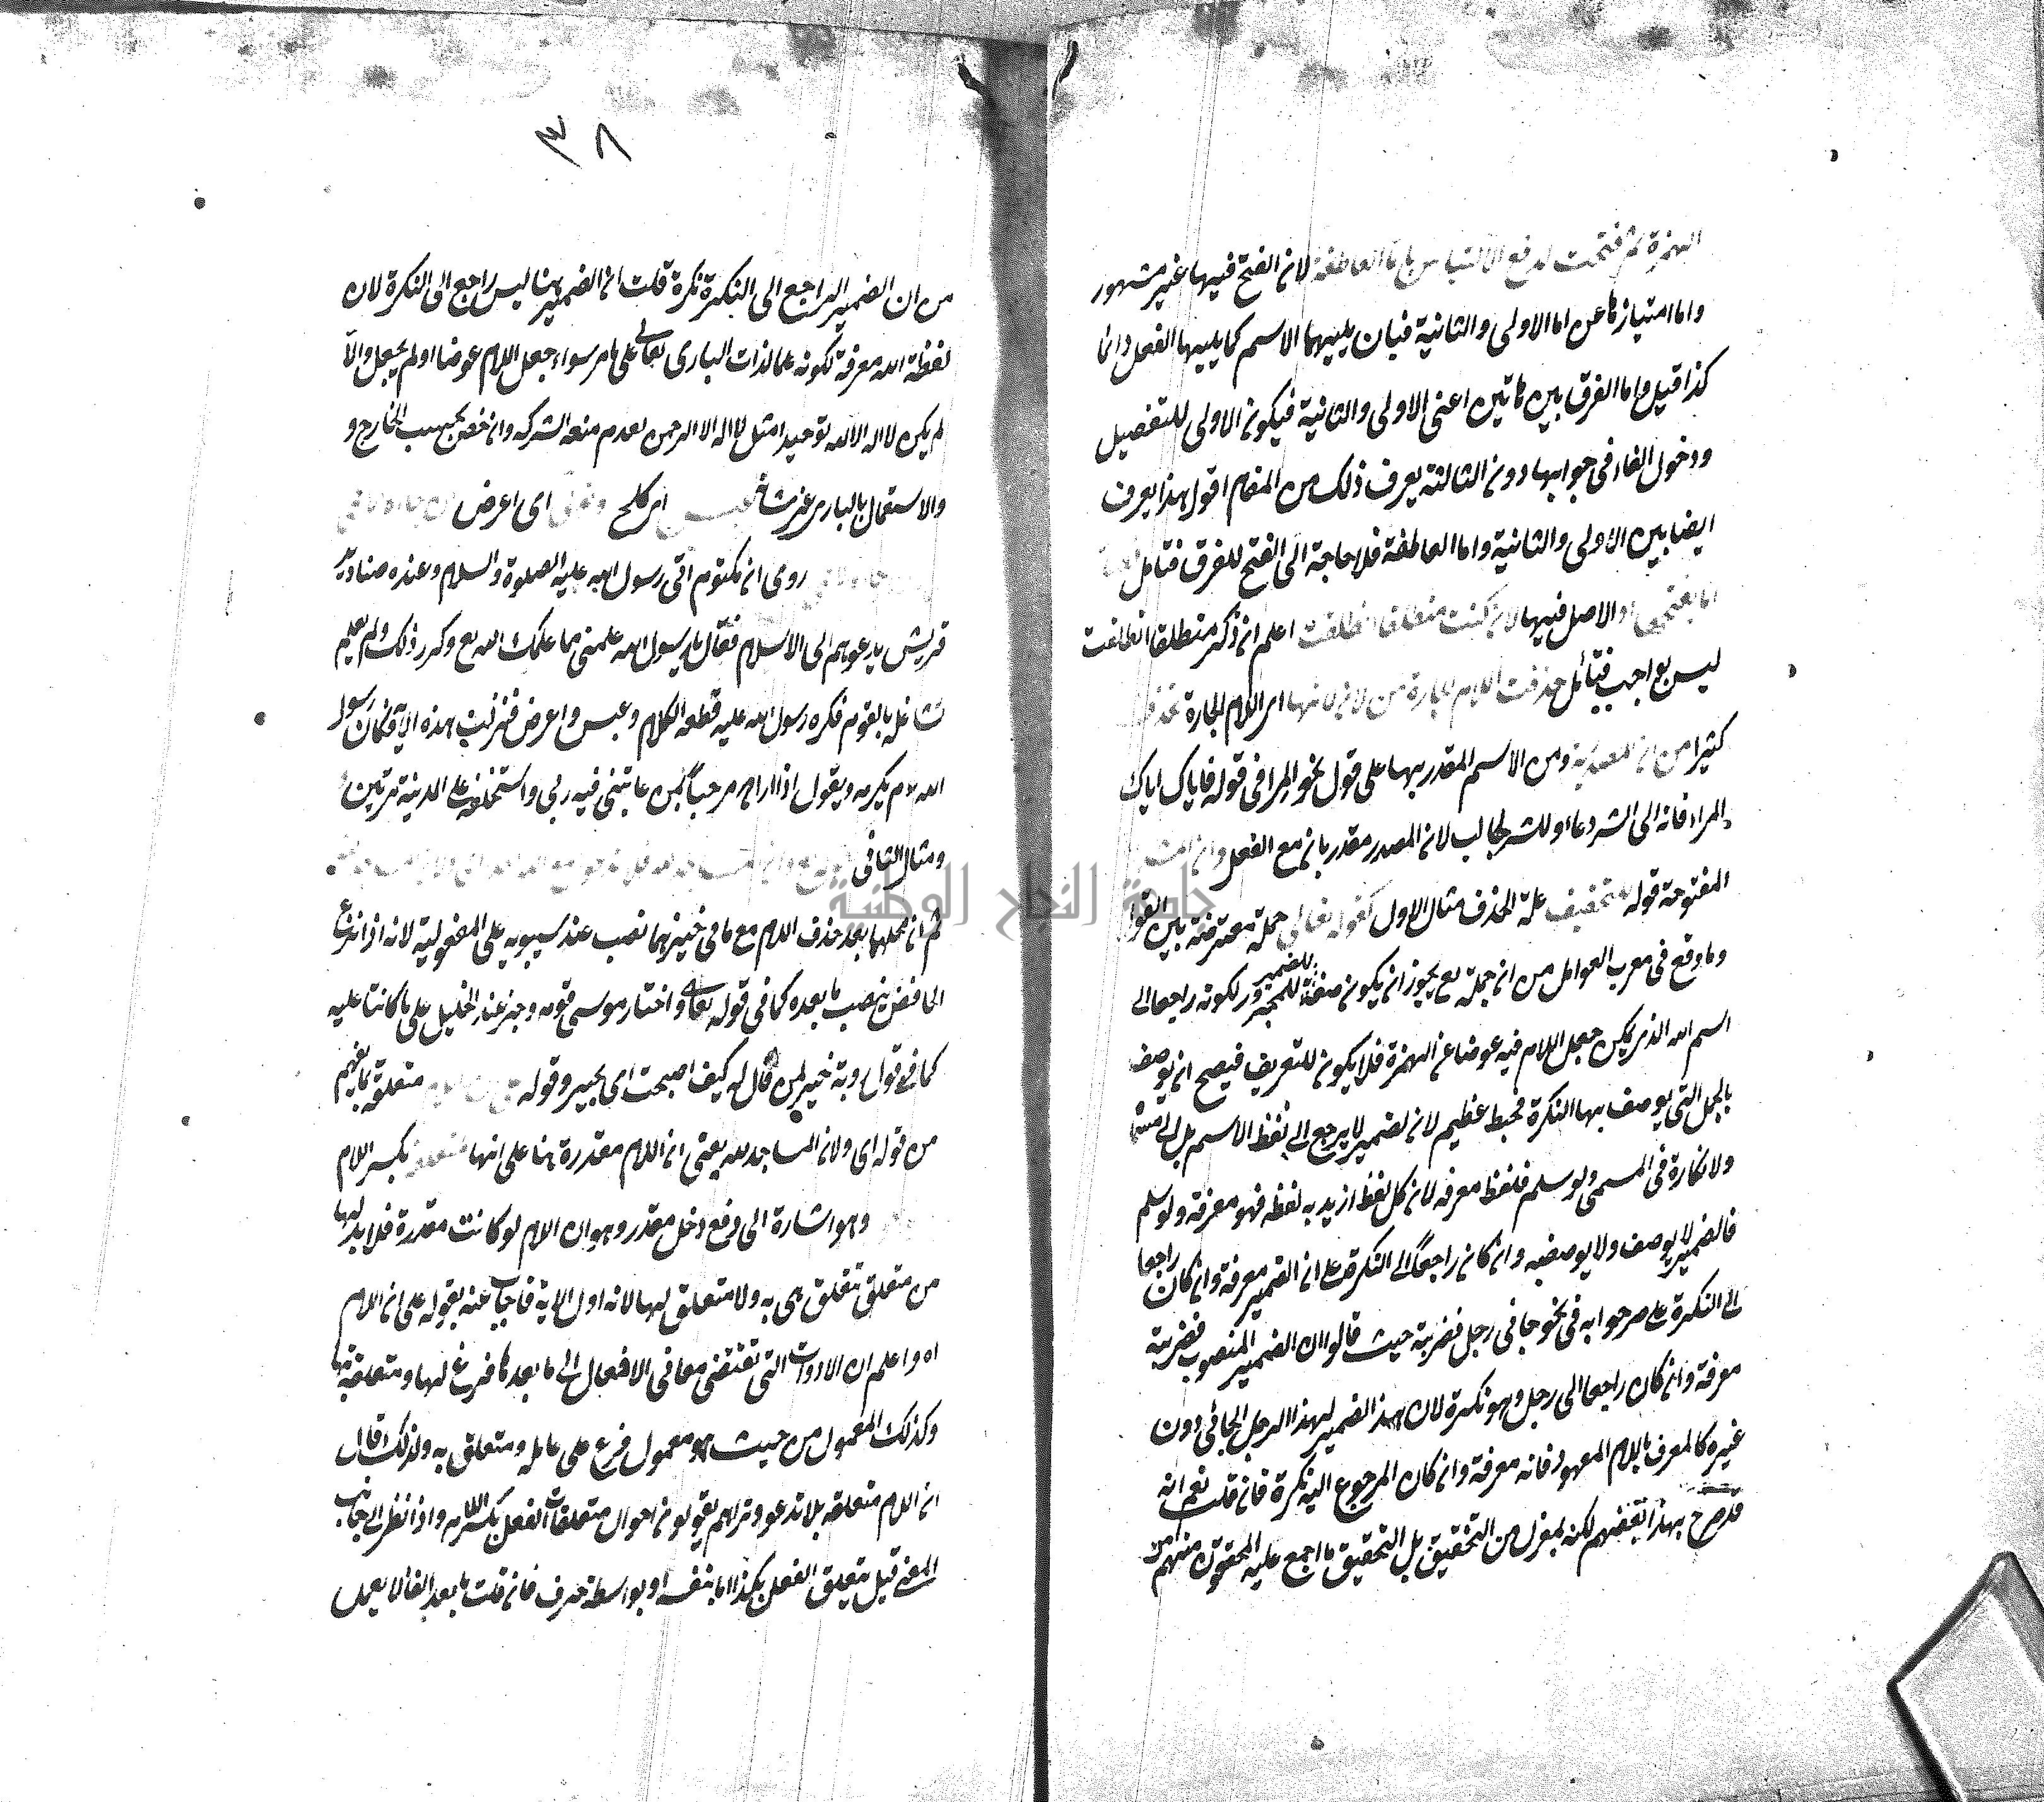 الهمزة ثم فتحت لدفع الالتباس باما العاطفة لان الفتح فيها غير مشهور
واما امتيازها عن اما الاولى والثانية فبان يليهما الاسم كما يليها الفعل دائما
كذا قيل واما الفرق بين هاتين اعنى الاولى والثانية فيكون الاولى للتفصيل
ودخول الفاء فى جوابها دون الثالثة يعرف ذلك من المقام اقول هذا يعرف
ايضا بين الاولى والثانية واما العاطفة فلا حاجة الى الفتح للفرق فتامل
والاصل فيها لان كنت منطلقا انطلقت اعلم ان ذكر منطلقا انطلقت
ليس بواجب فتأمل حذفت اللام الجارة من لان لانها اى اللام الجارة تحذف
كثيرا من ان المصدرية ومن الاسم المقدر بها على قول نحو المرا فى قوله فاياك اياك
المراء فانه الى الشر دعاء وللشر جالب لان المصدر مقدر بان مع الفعل وان
المفتوحة قوله تخفيف علة الحذف مثال الاول كقوله تعالى جملة معترضة بين القول
وما وقع فى معرب العوامل من ان جملة تع يجوز ان يكون صفة للضمير المجرور لكونه راجعا الى
اسم الله الذى يمكن جعل اللام فيه عوضا عن الهمزة فلا يكون للتعريف فيصح ان يوصف
بالجمل التى يوصف بها النكرة فخبط عظيم لان لضمير لا يرجع الى لفظ الاسم بل الى مسماه
ولا نكارة فى المسمى ولو سلم فلفظ معرفه لان كل لفظ ازيد به لفظه فهو معرفة ولو سلم
فالضمير لا يوصف ولا يوصف به وان كان راجعا الى النكرة على ان الضمير معرفة وان كان راجعا
الى النكرة على صرحوا به فى نحو جانى رجل فضربته حيث قالوا ان الضمير المنصوب فضربته
معرفة وان كان راجعا الى رجل وهو نكرة لان هذا الضمير لهذا الرجل الجائى دون
غيره كالمعرف باللام المعهود فانه معرفة وان كان المرجوع اليه نكرة فان قلت نعم انه
قد صرح بهذا بعضهم لكنه بمعزل من التحقيق بل التحقيق ما اجمع عليه المحققون منهم من
٣٨
من ان الضمير الراجع الى النكرة نكرة قلت ان الضمير هنا ليس راجع الى النكرة لان
لفظة الله معرفة لكونه علما لذات البارى تعالى على ما مر سواء جعل اللام عوضا او لم يجعل والا
لم يكن لا اله الا الله توحيدا مثل لا اله الا الرحمن لعدم منعه الشركه وان خص بحسب الخارج و
والاستعمال بالبارى عز شانه عبس اى كلح وتولى اى اعرض
روى ان مكتوم اتى رسول الله عليه الصلوة والسلام وعنده صناديد
قريش يدعوهم الى الاسلام فقال يا رسول الله علمنى مما علمك الله تع وكرر ذلك ولم يعلم
تشاغله بالقوم فكره رسول الله عليه قطعه الكلام وعبس واعرض فنزلت هذه الآية فكان رسول
الله م يكرمه ويقول اذا راه مرحبا بمن عاتبنى فيه ربى واستخلفه على المدينة مرتين
ومثال الثانى
ثم ان محلها بعد حذف اللام مع ما فى خيزهما نصب عند سيبويه على المفعولية لانه اذا نزع
الخافض ينصب ما بعده كما فى قوله تعالى واختار موسى قومه وجر عند الخليل على ما كانتا عليه
كما فى قول روبة خير لمن قال له كيف اصبحت اى بخير وقوله متعلقة بما يفهم
من قوله اى ولان المساجد لله يعنى ان اللام مقدرة هنا على انها متعلقة بكسر اللام
وهو اشارة الى دفع دخل مقدر وهو ان الام لو كانت مقدرة فلا بد لها
من متعلق تتعلق هى به ولا متعلق لها لانه اول الاية فاجاب عنه بقوله على ان اللام
اه واعلم ان الادوات التى تقتضى معانى الافعال الى ما بعدها فرع لها ومتعلقة بها
وكذلك المعمول من حيث هو معمول فرع على عامله ومتعلق به ولذلك قال
ان اللام متعلقة بلا تدعو وتراهم يقولون احوال متعلقات الفعل بكسر اللام واذا نظر الى جانب
المعنى قيل تتعلق الفعل بكذا اما بنفسه او بواسطة حرف فان قلت ما بعد الفاء لا يعمل
جامعة النجاح الوطنية